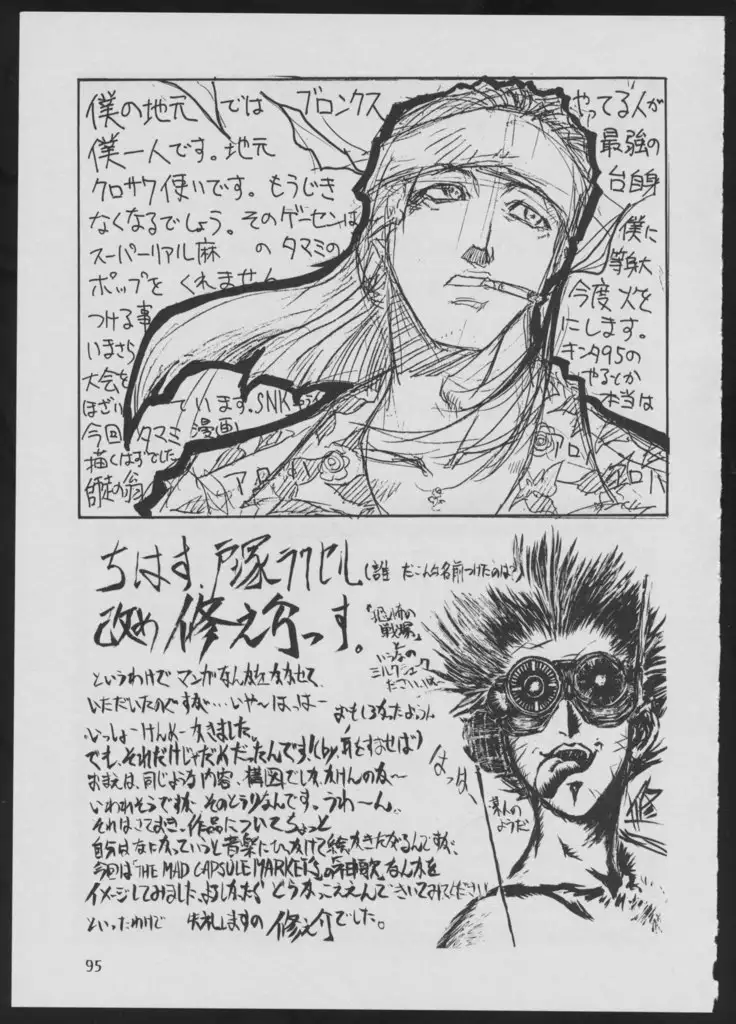 僕の地元では ブロンクス やってる人が
僕一人です。地元 最強の
クロサワ使いです。もうじき 台自身
なくなるでしょう。そのゲーセンは 僕に
スーパーリアル麻 の タマミの 等身大
ポップを くれません 今度 火を
つける事 にします。
いまさら キンタ95の
大会を やるとか
ほざい ています。SNK 本当は
今回 タマミ 漫画
描くはずでした
師走の翁
アロハ アロ アロハ
ちはす、戸塚ラクセル(誰 だこんな名前つけたのは?)
改め 修之介っす。
「恐怖の
戦場」
と
いうなの
ミルクシェーク
ださいいは
というわけで マンガなんかをかかせて
いただいたのですが…いや〜は、はー
いっしょーけんめーかきました。
おもしろかったようん
でも、それだけじゃだめだったんです!(by 耳をすませば)
おまえは、同じような内容、構図でしかかけんのな〜
いわれそうですが そのとうりなんです。うわーん。
それはさておき、作品についてちょっと
自分はなにかっていうと音楽にひっかけて絵がかきたくなるんですが、
今回は「THE MAD CAPSULE MARKET'S」の なんかを
イメージしてみました、よしかったら どうか きいてみてください
といったわけで 失礼しますの 修之介でした。
はっは、
茶人の
ようだ
修
95